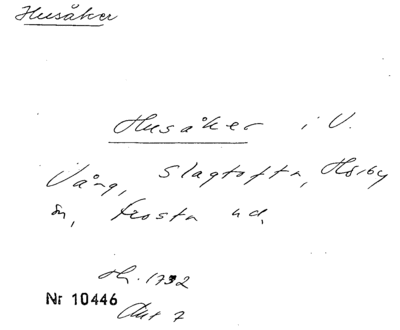 Husåker
Husåker i V.
Vång, Slagtofta, Hörby
sn, Frosta hd,
Hs. 1732
Nr 10446
Akt 7